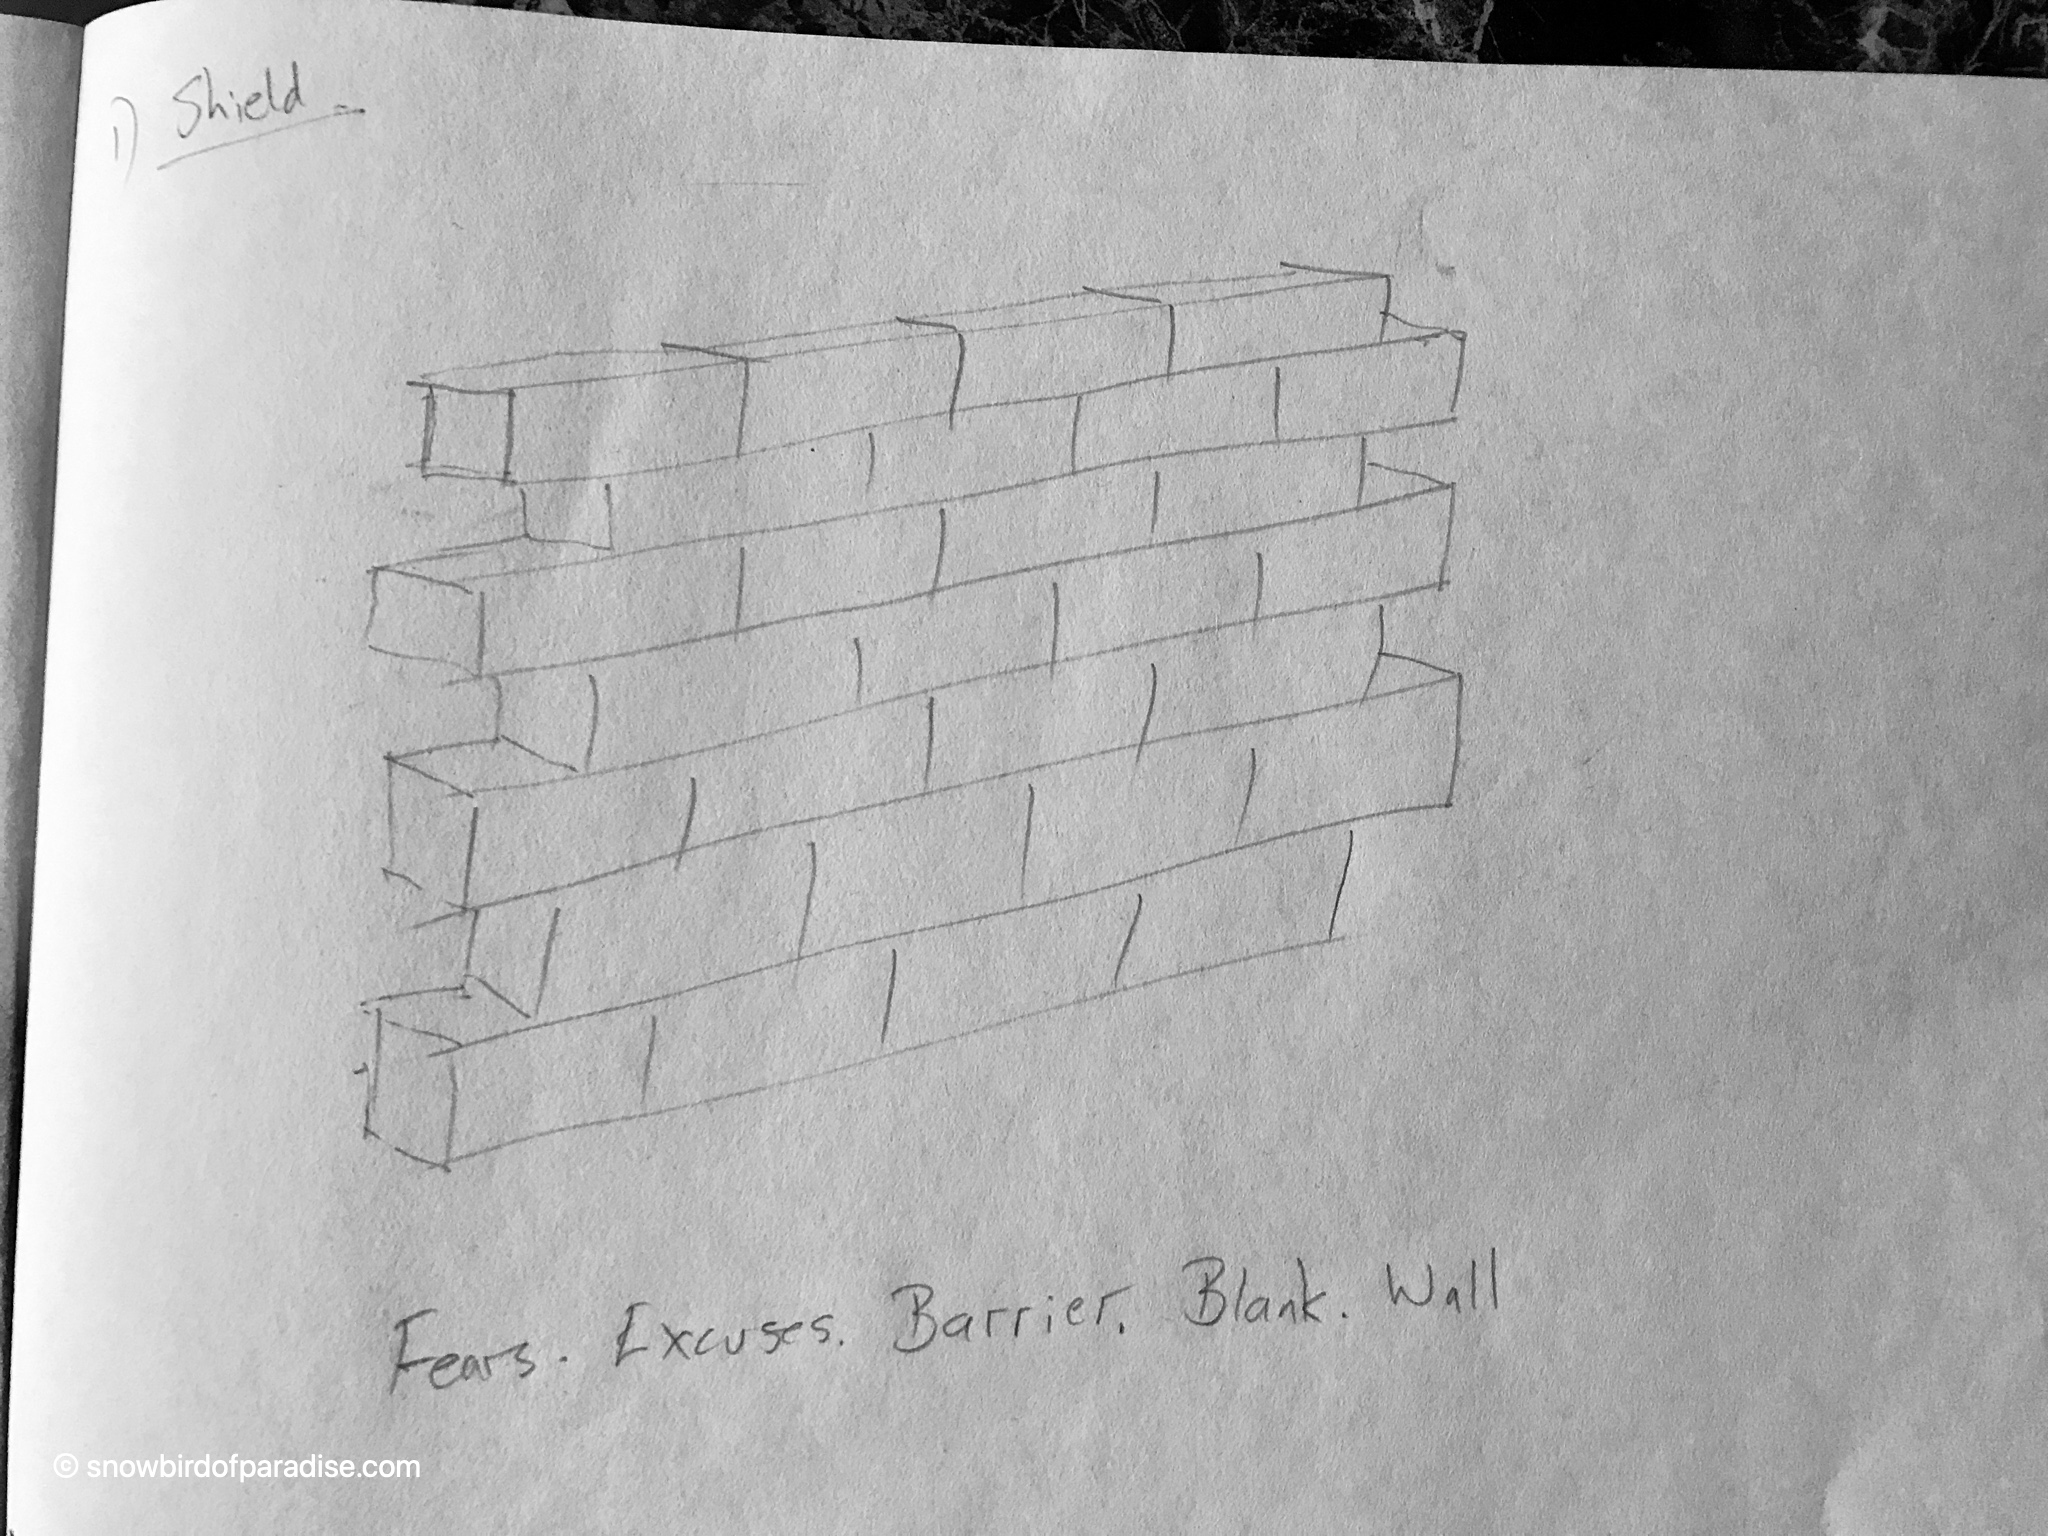 1) Shield -
Fears. Excuses. Barrier. Blank. Wall
© snowbirdofparadise.com